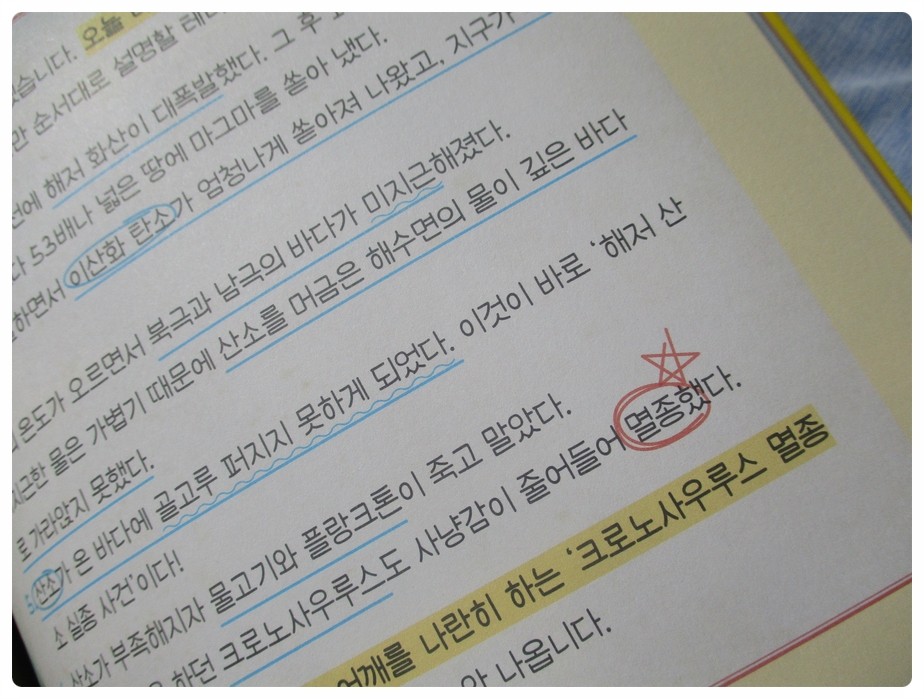 습니다. 오늘
만 순서대로 설명할
전에 해저 화산이 대폭발했다. 그 후
다 53배나 넓은 땅에 마그마를 쏟아 냈다.
하면서 이산화 탄소가 엄청나게 쏟아져 나왔고, 지구가
온도가 오르면서 북극과 남극의 바다가 미지근해졌다.
지근한 물은 가볍기 때문에 산소를 머금은 해수면의 물이 깊은 바다
로 가라앉지 못했다.
산소가 온 바다에 골고루 퍼지지 못하게 되었다. 이것이 바로 ‘해저 산
소 실종 사건’이다!
산소가 부족해지자 물고기와 플랑크톤이 죽고 말았다.
하던 크로노사우루스도 사냥감이 줄어들어 멸종했다.
어깨를 나란히 하는 ‘크로노사우루스 멸종
나옵니다.